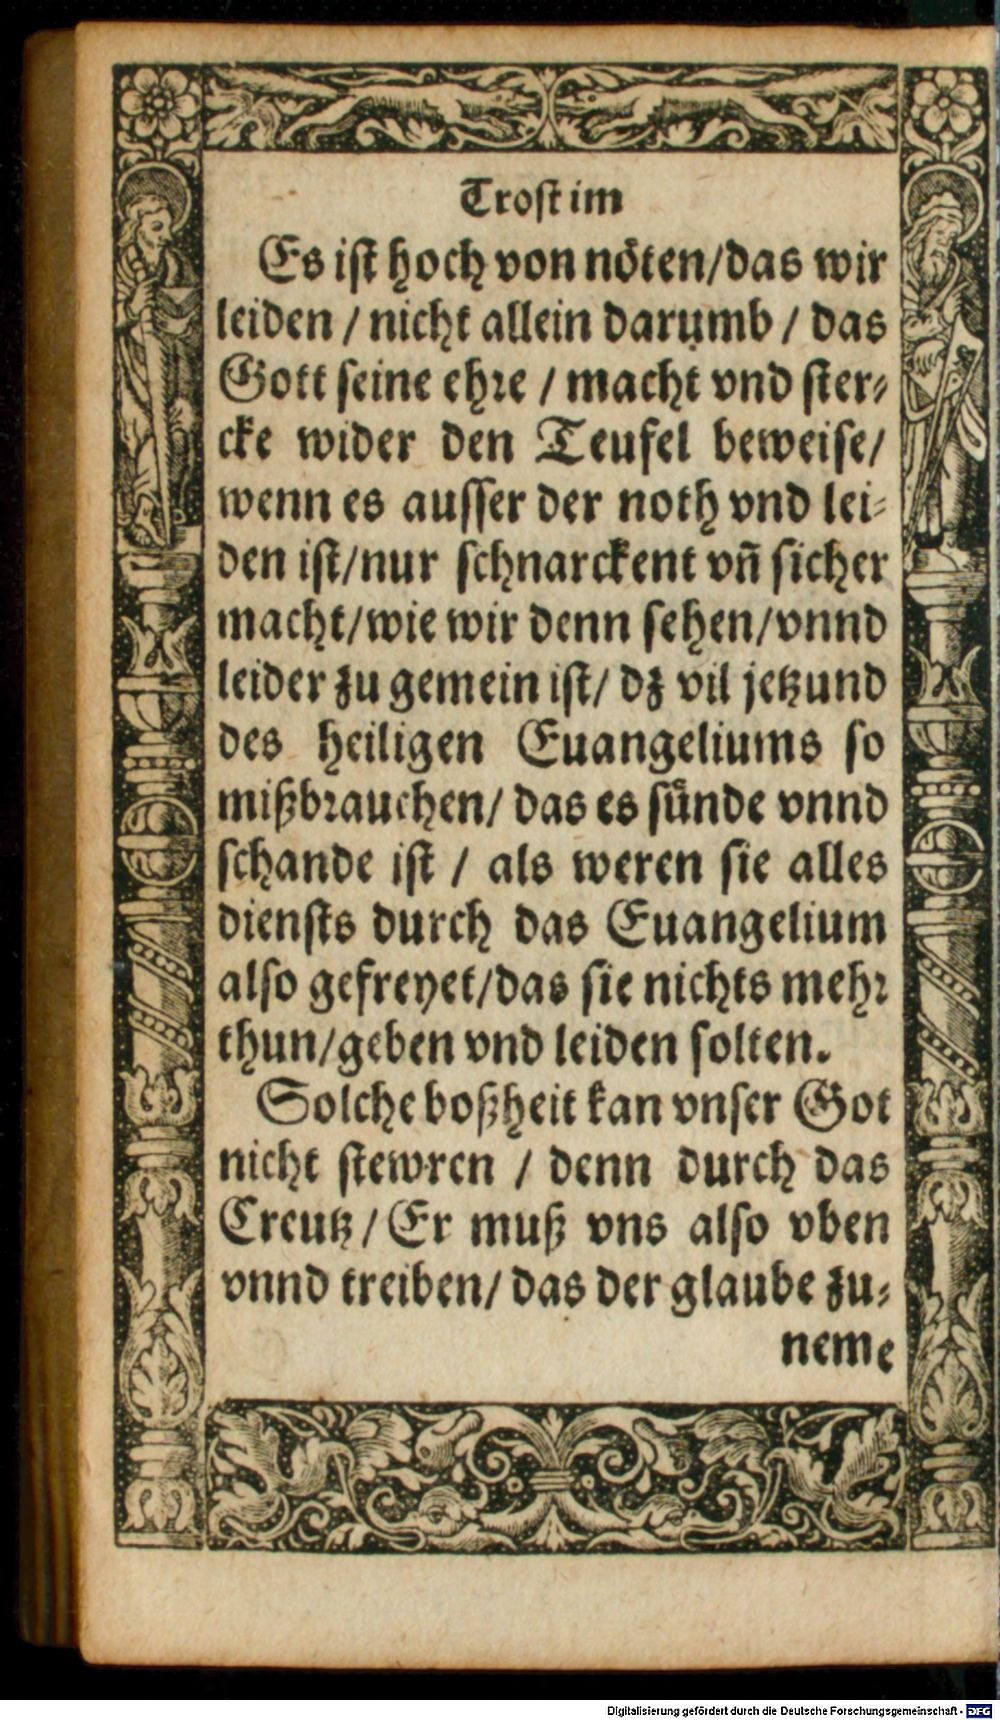 Trost im
Es ist hoch von nöten/das wir
leiden / nicht allein darumb / das
Gott seine ehre / macht vnd ster⸗
cke wider den Teufel beweise/
wenn es ausser der noth vnd lei⸗
den ist/nur schnarckent vñ sicher
macht/wie wir denn sehen/vnnd
leider zu gemein ist/ dz vil jetzund
des heiligen Euangeliums so
mißbrauchen/ das es sünde vnnd
schande ist / als weren sie alles
diensts durch das Euangelium
also gefreyet/das sie nichts mehr
thun/geben vnd leiden solten.
Solche boßheit kan vnser Got
nicht stewren / denn durch das
Creutz/ Er muß vns also vben
vnnd treiben/ das der glaube zu⸗
neme
Digitalisierung gefördert durch die Deutsche Forschungsgemeinschaft - DFG